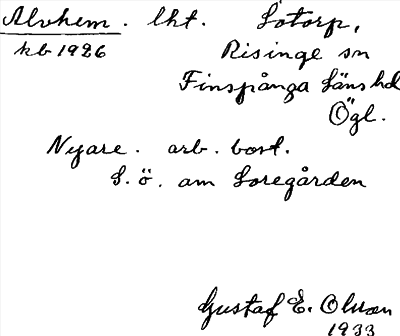 Alvhem. lht. Lotorp,
kb 1926 Risinge sn
Finspånga läns hd
Ögl.
Nyare. arb. bost.
S. ö. om Loregården
Gustaf E. Olsson
1933